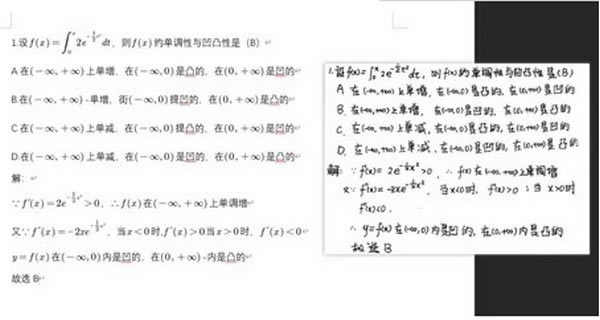 1.设f(x)=∫₀ˣ2e^{-½t²}dt，则f(x)约单调性与凹凸性是（B）
A 在(-∞,+∞)上单增，在(-∞,0)是凸的，在(0,+∞)是凹的
B.在(-∞,+∞)-单增，街(-∞,0)提凹的，在(0,+∞)是凸的
C 在(-∞,+∞)上单减，在(-∞,0)提凸的，在(0,+∞)是凹的
D.在(-∞,+∞)上单减，在(-∞,0)是凹的，在(0,+∞)是凸的
解：
∵f'(x)=2e^{-½x²}>0，∴f(x)在(-∞,+∞)上单调增
又∵f''(x)=-2xe^{-½x²}，当x<0时,f''(x)>0当x>0时，f''(x)<0
y=f(x)在(-∞,0)内是凹的，在(0,+∞)-内是凸的
故选B
1.设f(x)=∫₀ˣ2e^{-½t²}dt，则f(x)的单调性与凹凸性是(B)
A 在(-∞,+∞)上单增，在(-∞,0)是凸的，在(0,+∞)是凹的
B. 在(-∞,+∞)上单增，在(-∞,0)是凹的，在(0,+∞)是凸的
C. 在(-∞,+∞)上单减，在(-∞,0)是凸的，在(0,+∞)是凹的
D. 在(-∞,+∞)上单减，在(-∞,0)是凹的，在(0,+∞)是凸的
解：∵f'(x)=2e^{-½x²}>0，∴f(x)在(-∞,+∞)上单调增
又∵f''(x)=-2xe^{-½x²}，当x<0时，f''(x)>0；当x>0时
f''(x)<0.
∴y=f(x)在(-∞,0)内是凹的，在(0,+∞)内是凸的
故选B